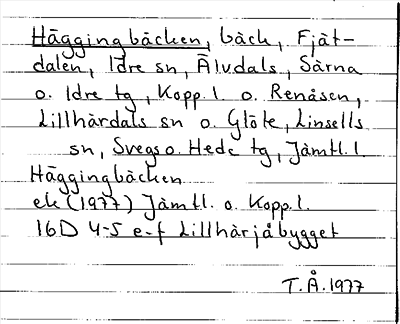 Häggingbäcken, bäck, Fjät-
dalen, Idre sn, Älvdals, Särna
o. Idre tg, Kopp. l. o. Renåsen,
Lillhärdals sn o. Glöte, Linsells
sn, Svegs o. Hede tg, Jämtl. l.
Häggingbäcken
ek (1977) Jämtl. o. Kopp. l.
16D 4-5 e-f Lillhärjåbygget
T. Å. 1977